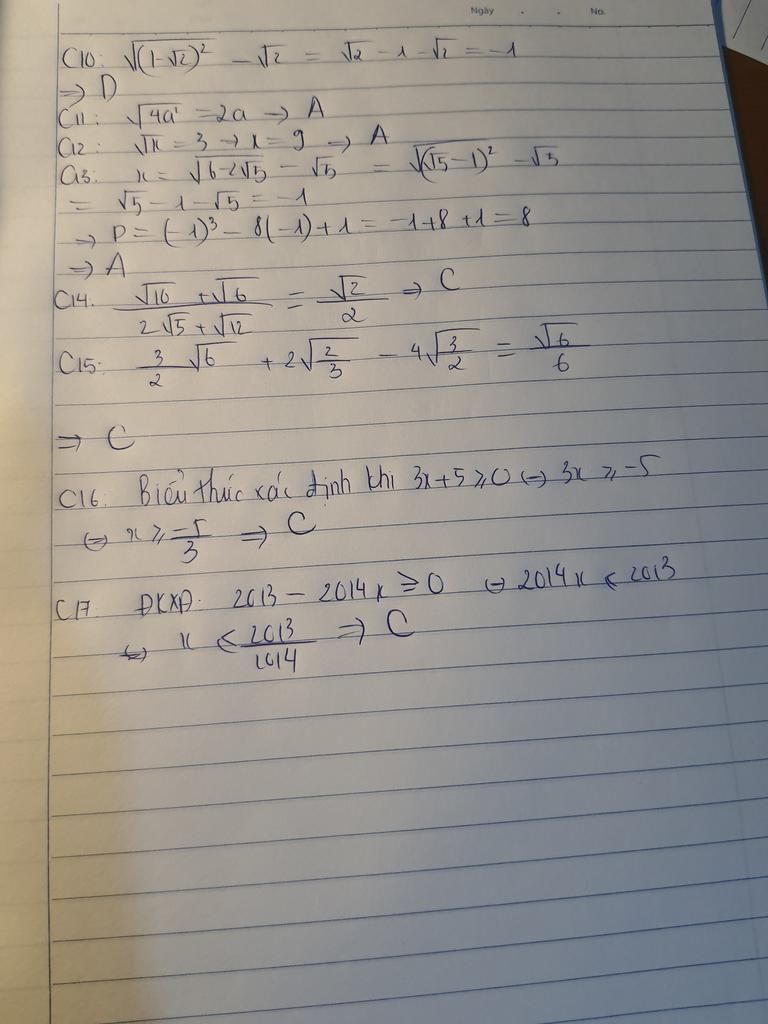 Ngày . . No.
C10: √(1-√2)² - √2 = √2 - 1 - √2 = -1
=> D
C11: √4a² = 2a -> A
C12: √x = 3 -> x = 9 -> A
C13: x = √6-2√5 - √5 = √(√5-1)² - √5
= √5 - 1 - √5 = -1
-> P = (-1)³ - 8(-1) + 1 = -1 + 8 + 1 = 8
=> A
C14. (√10 + √6)/(2√5 + √12) = √2/2 => C
C15: 3/2 √6 + 2√2/3 - 4√3/2 = √6/6
=> C
C16: Biểu thức xác định khi 3x+5 ≥ 0 <=> 3x ≥ -5
<=> x ≥ -5/3 => C
C17 ĐKXĐ: 2013 - 2014x ≥ 0 <=> 2014x ≤ 2013
<=> x ≤ 2013/2014 => C